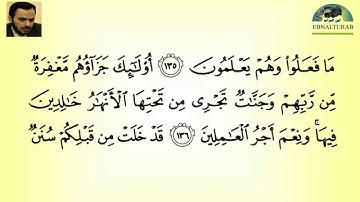 EBNALTURAB
مَا فَعَلُوا۟ وَهُمْ يَعْلَمُونَ ١٣٥ أُو۟لَٰٓئِكَ جَزَآؤُهُم مَّغْفِرَةٌ
مِّن رَّبِّهِمْ وَجَنَّٰتٌ تَجْرِى مِن تَحْتِهَا ٱلْأَنْهَٰرُ خَٰلِدِينَ
فِيهَا ۚ وَنِعْمَ أَجْرُ ٱلْعَٰمِلِينَ ١٣٦ قَدْ خَلَتْ مِن قَبْلِكُمْ سُنَنٌ